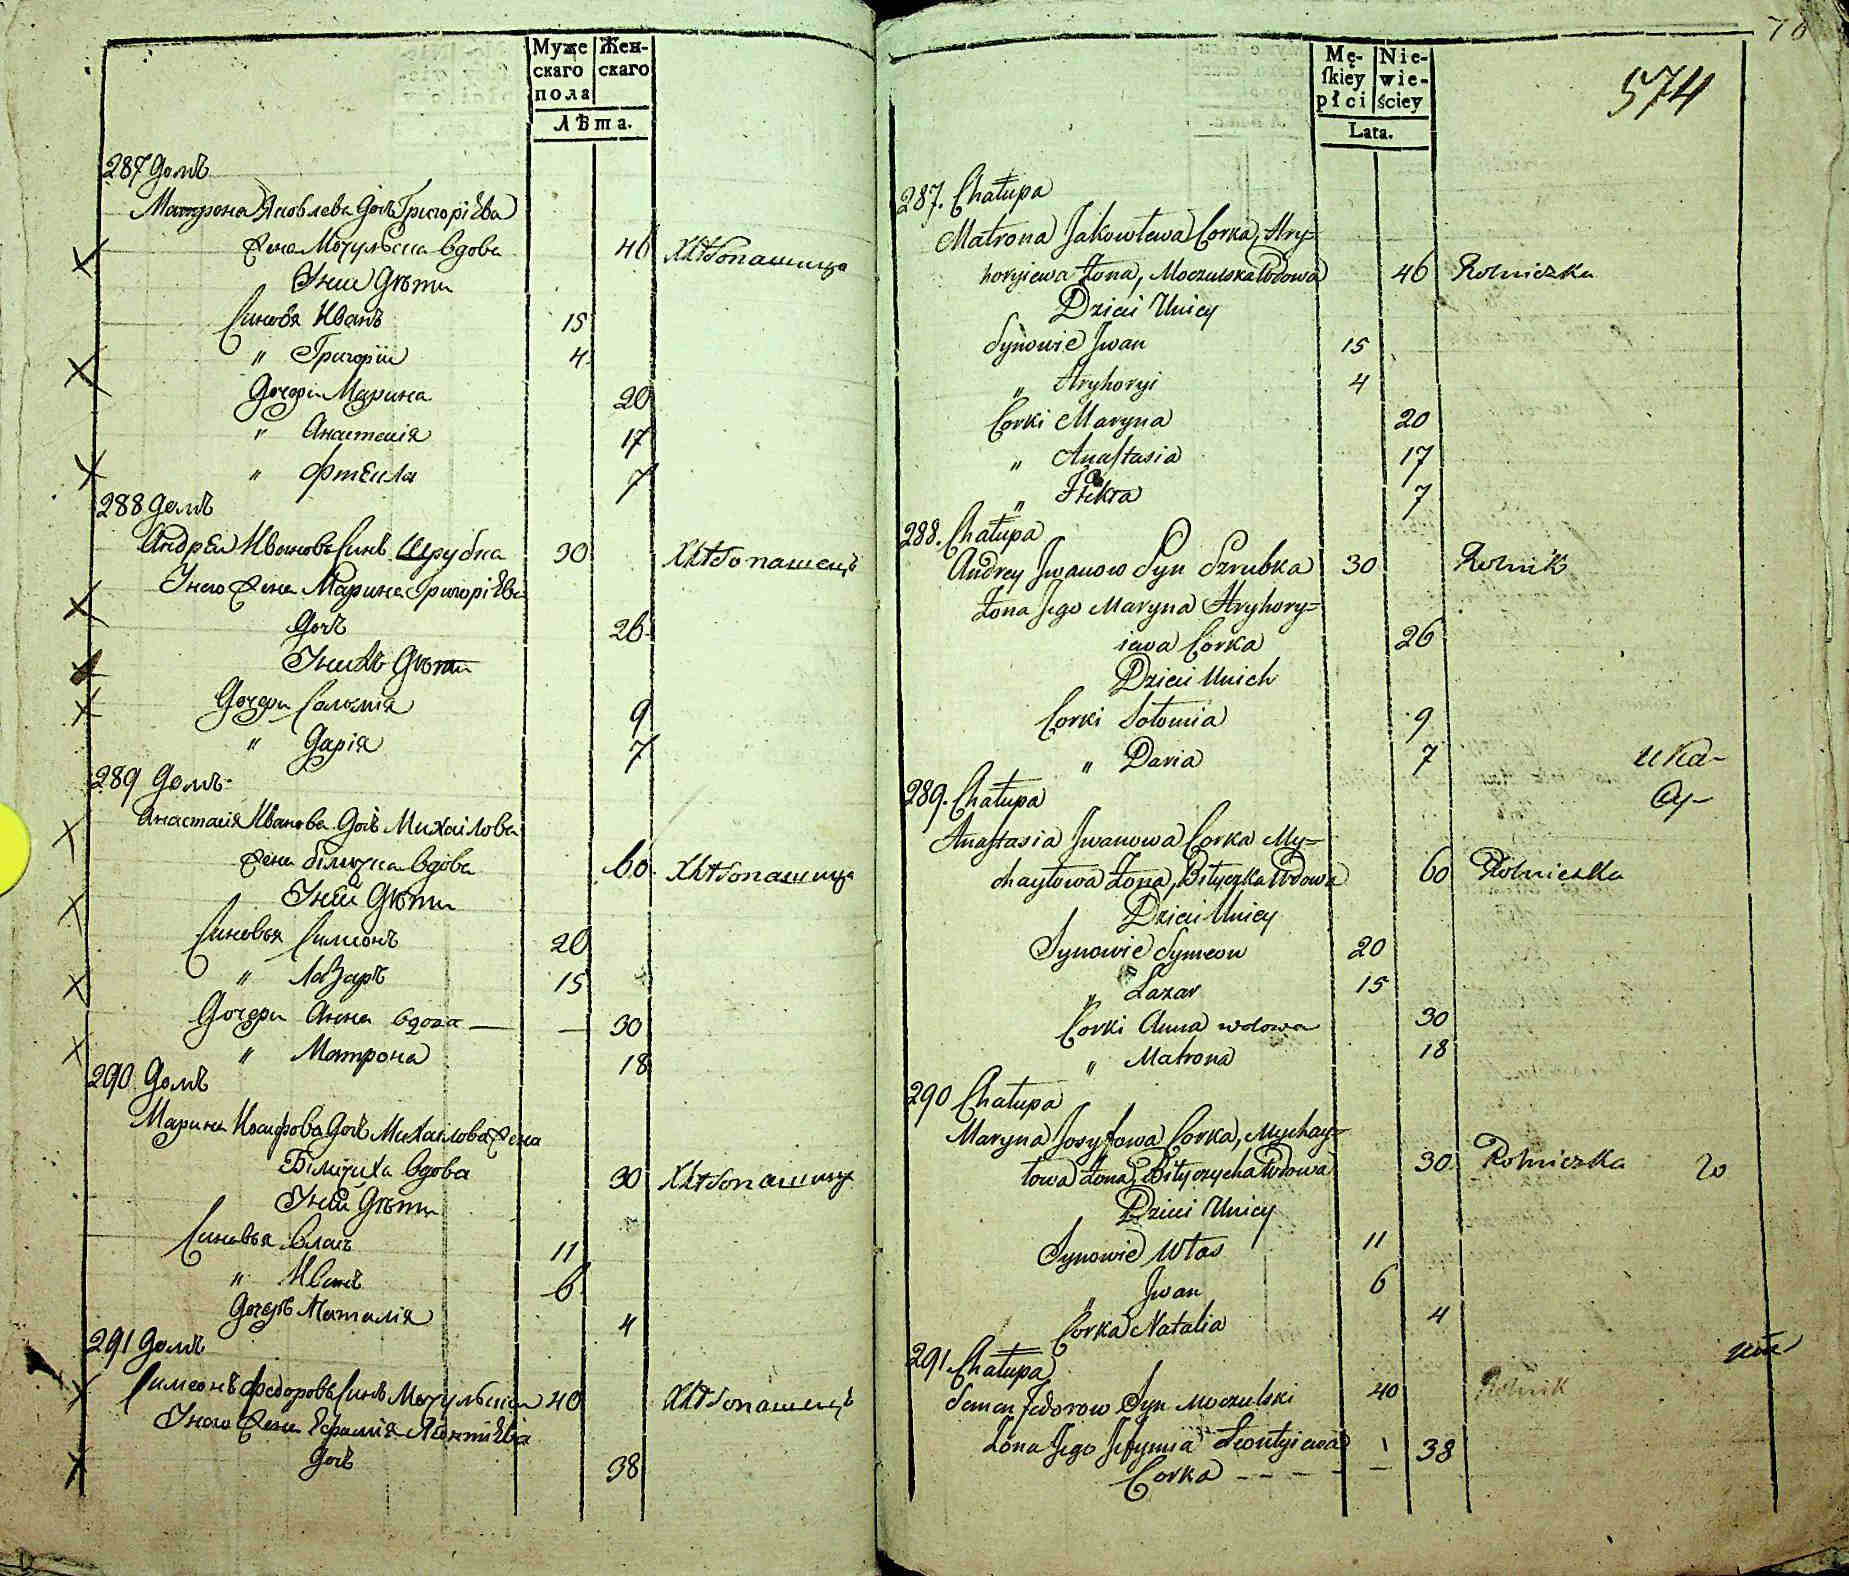 Муже
скаго
пола
Жен-
скаго
Лѣта.
287 Домъ
Матрона Яковлева Дочь Григоріева
Жена Мочульска вдова 46 Хлѣбопашица
Уней Дѣти
Синовя Иванъ 15
" Григорїи 4
Дочери Марина 20
" Анастасія 17
" Фтекла 7
288 Домъ
Андреи Ивановъ Синъ Шрубка 30 Хлѣбопашецъ
Унего Жена Марина Григоріева
Дочь 26
Унихъ Дѣти
Дочери Соломія 9
" Дарія 7
289 Домъ
Анастасія Иванова Дочь Михаілова
Жена Білычка вдова 60 Хлѣбопашица
Уней Дѣти
Синовья Симеонъ 20
" Лазаръ 15
Дочери Анна вдова — — 30
" Матрона 18
290 Домъ
Марина Иосифова Дочь Михаілова Жена
Білычиха вдова 30 Хлѣбопашица
Уней Дѣти
Синовья Власъ 11
" Иванъ 6
Дочерь Наталія 4
291 Домъ
Симеонъ Федоровъ Синъ Мочульскіи 40 Хлѣбопашецъ
Унего Жена Ефимія Леонтіева
Дочь 38
76
574
Mę-
ſkiey
płci
Nie-
wie-
ściey
Lata.
287. Chałupa
Matrona Jakowlewa Corka, Hry=
horyiewa Żona, Moczulska Wdowa 46 Rolniczka
Dzieci Unicy
Synowie Iwan 15
" Hryhoryi 4
Corki Maryna 20
" Anastasia 17
" Ftekra 7
288. Chałupa
Andrey Iwanow Syn Szrubka 30 Rolnik
Żona Jego Maryna Hryhory=
iewa Corka 26
Dzieci Unich
Corki Sołomia 9
" Daria 7
ика-
Су-
289. Chałupa
Anastasia Iwanowa Corka My=
chayłowa Żona, Biłyczka Wdowa 60 Rolniczka
Dzieci Unicy
Synowie Symeon 20
" Łazar 15
Corki Anna wdowa 30
" Matrona 18
290 Chałupa
Maryna Josyfowa Corka, Mychay=
łowa Żona, Biłyczycha Wdowa 30 Rolniczka
Dzieci Unicy
Synowie Własـ 11
" Iwan 6
Corka Natalia 4
291 Chałupa
Semen Fedorow Syn Moczulski 40 Rolnik
Żona Jego Jefymia Leontyiewa 38
Corka - - - - - -